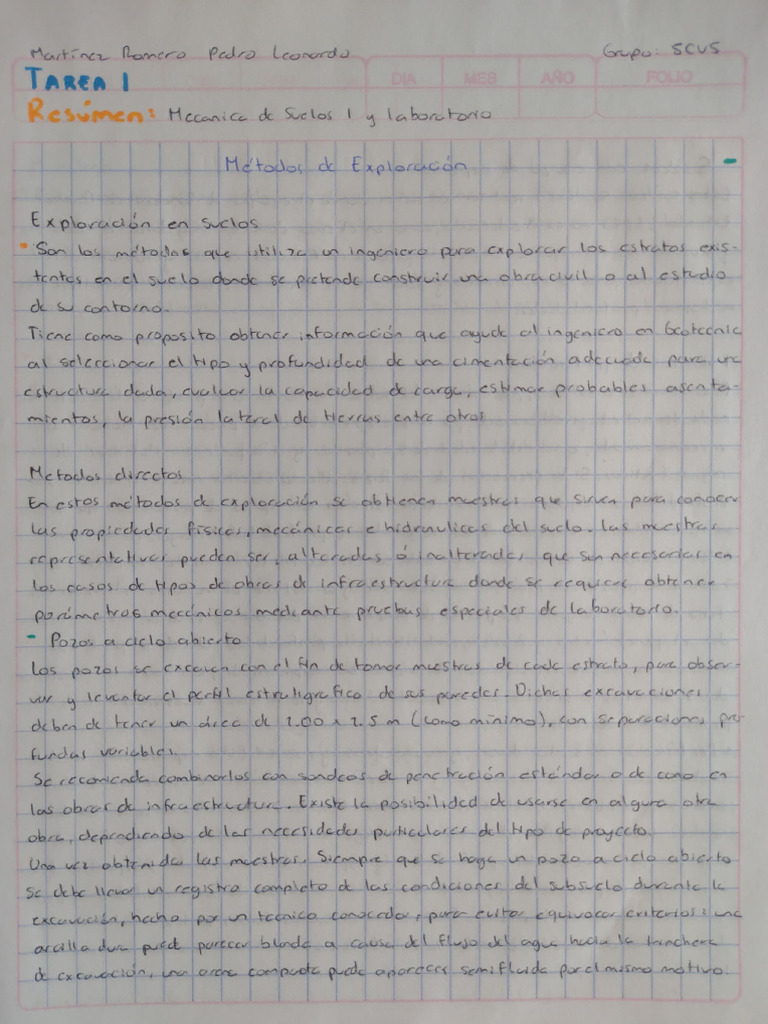 Martínez Romero Pedro Leonardo Grupo: 5CV5
TAREA 1 DIA MES AÑO FOLIO
Resúmen: Mecanica de Suelos 1 y laboratorio
Métodos de Exploración
Exploración en suelos
Son los métodos que utiliza un ingeniero para explorar los estratos exis-
tentes en el suelo donde se pretende construir una obra civil o al estudio
de su contorno.
Tiene como proposito obtener información que ayude al ingeniero en Geotecnia
al seleccionar el tipo y profundidad de una cimentación adecuada para una
estructura dada, evaluar la capacidad de carga, estimar probables asenta-
mientos, la presión lateral de tierras entre otros
Metodos directos
En estos métodos de exploración se obtienen muestras que sirven para conocer
las propiedades físicas, mecánicas e hidraulicas del suelo. Las muestras
representativas pueden ser, alteradas ó inalteradas, que son necesarias en
los casos de tipos de obras de infraestructura donde se requiere obtener
parámetros mecánicos mediante pruebas especiales de laboratorio.
- Pozos a cielo abierto
Los pozos se excavan con el fin de tomar muestras de cada estrato, para obser-
var y levantar el perfil estratigrafico de sus paredes. Dichas excavaciones
deben de tener un area de 1.00 x 1.5 m (como minimo), con separaciones pro-
fundas variables.
Se recomienda combinarlos con sondeos de penetración estándar o de cono en
las obras de infraestructura. Existe la posibilidad de usarse en alguna otra
obra, dependiendo de las necesidades particulares del tipo de proyecto.
Una vez obtenidas las muestras. Siempre que se haga un pozo a cielo abierto
se debe llevar un registro completo de las condiciones del subsuelo durante la
excavación, hecho por un tecnico conocedor, para evitar equivocar criterios: una
arcilla dura puede parecer blanda a causa del flujo del agua hacia la trinchera
de excavación, una arena compacta puede aparecer semifluida por el mismo motivo.